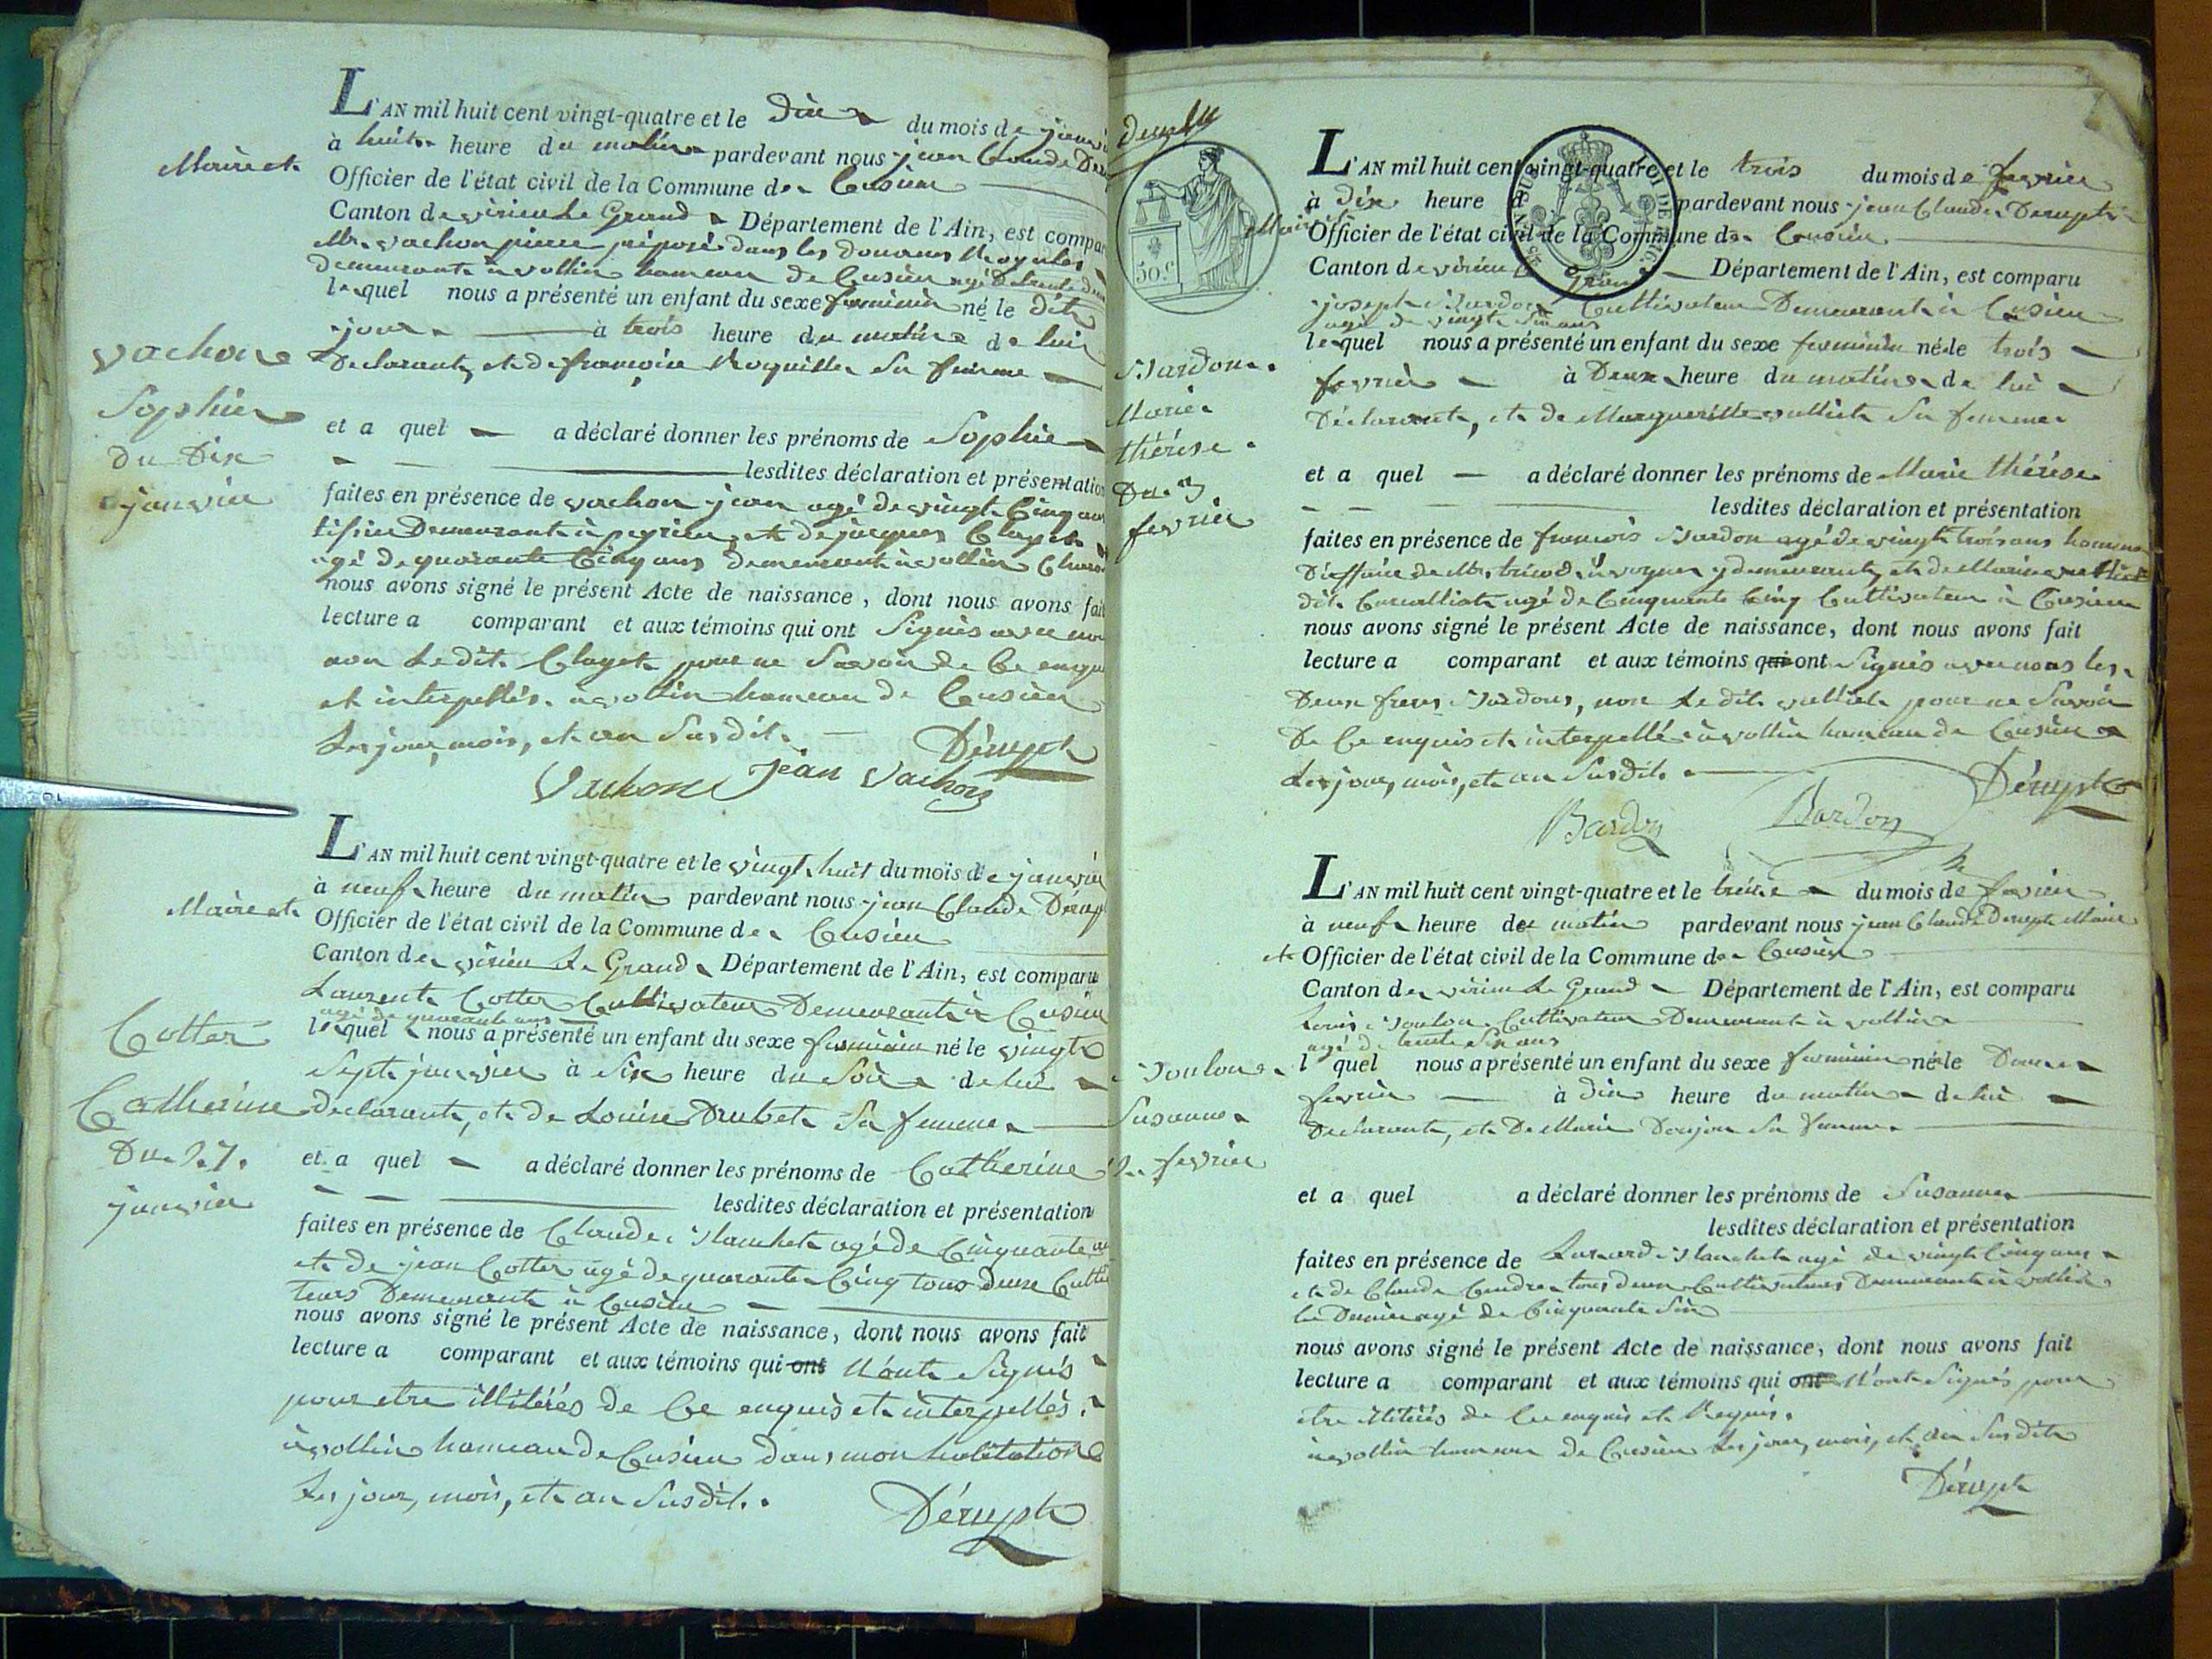 L'AN mil huit cent vingt-quatre et le Dix du mois de janvier
Maire et à huit heure du matin pardevant nous jean Claude
Officier de l'état civil de la Commune de Cusieu
Canton de virieu Le Grand Département de l'Ain, est comparu
Mr. vachon pierre préposé dans les Douanes Royales
demeurant à vollin hameau de Cusieu agé de trente
lequel nous a présenté un enfant du sexe feminin né le dit
jour à trois heure du matin de lui
Declarant, et de françoise Roquille Sa femme
Vachon
Sophie
du Dix
janvier
et a quel a déclaré donner les prénoms de Sophie
lesdites déclaration et présentation
faites en présence de vachon jean agé de vingt Cinq ans
demeurant à peyrieu, et de jacques Clayet
agé de quarante Cinq ans demeurant à vollin
nous avons signé le présent Acte de naissance, dont nous avons fait
lecture a comparant et aux témoins qui ont Signés avec nous
non Le dit Clayet pour ne Savoir de Ce enquis
et interpellés. à vollin hameau de Cusieu
Les jour, mois, et an Susdit. Dérupt
Vachon Jean Vachon
L'AN mil huit cent vingt-quatre et le vingt huit du mois de janvier
Maire et à neuf heure du matin pardevant nous jean Claude Derupt
Officier de l'état civil de la Commune de Cusieu
Canton de virieu Le Grand Département de l'Ain, est comparu
Laurent Cotter Cultivateur Demeurant à Cusieu
agé de quarante ans
lequel nous a présenté un enfant du sexe feminin né le vingt
Sept janvier à Six heure du Soir de lui
declarant, et de Louise Drubet Sa femme
Cotter
Catherine
Du 27.
janvier
et a quel a déclaré donner les prénoms de Catherine
lesdites déclaration et présentation
faites en présence de Claude agé de Cinquante
et de jean Cotter agé de quarante Cinq tous deux Culti
teurs Demeurant à Cusieu
nous avons signé le présent Acte de naissance, dont nous avons fait
lecture a comparant et aux témoins qui ont N'ont Signés
pour etre illitérés de Ce enquis et interpellés.
à vollin hameau de Cusieu dans mon habitation
Les jour, mois, et an Susdit.
Dérupt
50 c
L'AN mil huit cent vingt-quatre et le trois du mois de fevrier
à Dix heure pardevant nous jean Claude Derupt
Maire
Officier de l'état civil de la Commune de Cusieu
Canton de virieu Le Grand Département de l'Ain, est comparu
joseph Bardon Cultivateur Demeurant à Cusieu
agé de vingt Six ans
lequel nous a présenté un enfant du sexe feminin né le trois
fevrier à Deux heure du matin de lui
Déclarant, et de Margueritte vulliet Sa femme
Bardon
Marie
thérèse
Du 3
fevrier
et a quel a déclaré donner les prénoms de Marie thérèse
lesdites déclaration et présentation
faites en présence de françois Bardon agé de vingt trois ans homme
D'affaire de Mr. y demeurant, et de
dit agé de Cinquante Cinq Cultivateur à Cusieu
nous avons signé le présent Acte de naissance, dont nous avons fait
lecture a comparant et aux témoins qui ont Signés avec nous les
Deux freres Bardons, non Le dit vulliet pour ne Savoir
De Ce enquis et interpellé à vollin hameau de Cusieu
Les jour, mois, et an Susdit. Dérupt
Bardon Bardon
L'AN mil huit cent vingt-quatre et le treize du mois de fevrier
à neuf heure du matin pardevant nous jean Claude Derupt Maire
et Officier de l'état civil de la Commune de Cusieu
Canton de virieu Le Grand Département de l'Ain, est comparu
Louis Boulon Cultivateur Demeurant à vollin
agé de trente Six ans
l quel nous a présenté un enfant du sexe feminin né le Douze
fevrier à Dix heure du matin de lui
Declarant, et De Marie Donjon Sa femme
Boulon
Susanne
12 fevrier
et a quel a déclaré donner les prénoms de Susanne
lesdites déclaration et présentation
faites en présence de agé de vingt Cinq ans
et de Claude tous deux Cultivateurs Demeurant à vollin
le Dernier agé de Cinquante Six
nous avons signé le présent Acte de naissance, dont nous avons fait
lecture a comparant et aux témoins qui ont N'ont Signés pour
être illitérés de Ce enquis et Requis.
à vollin hameau de Cusieu Les jour, mois, et an Susdit
Dérupt